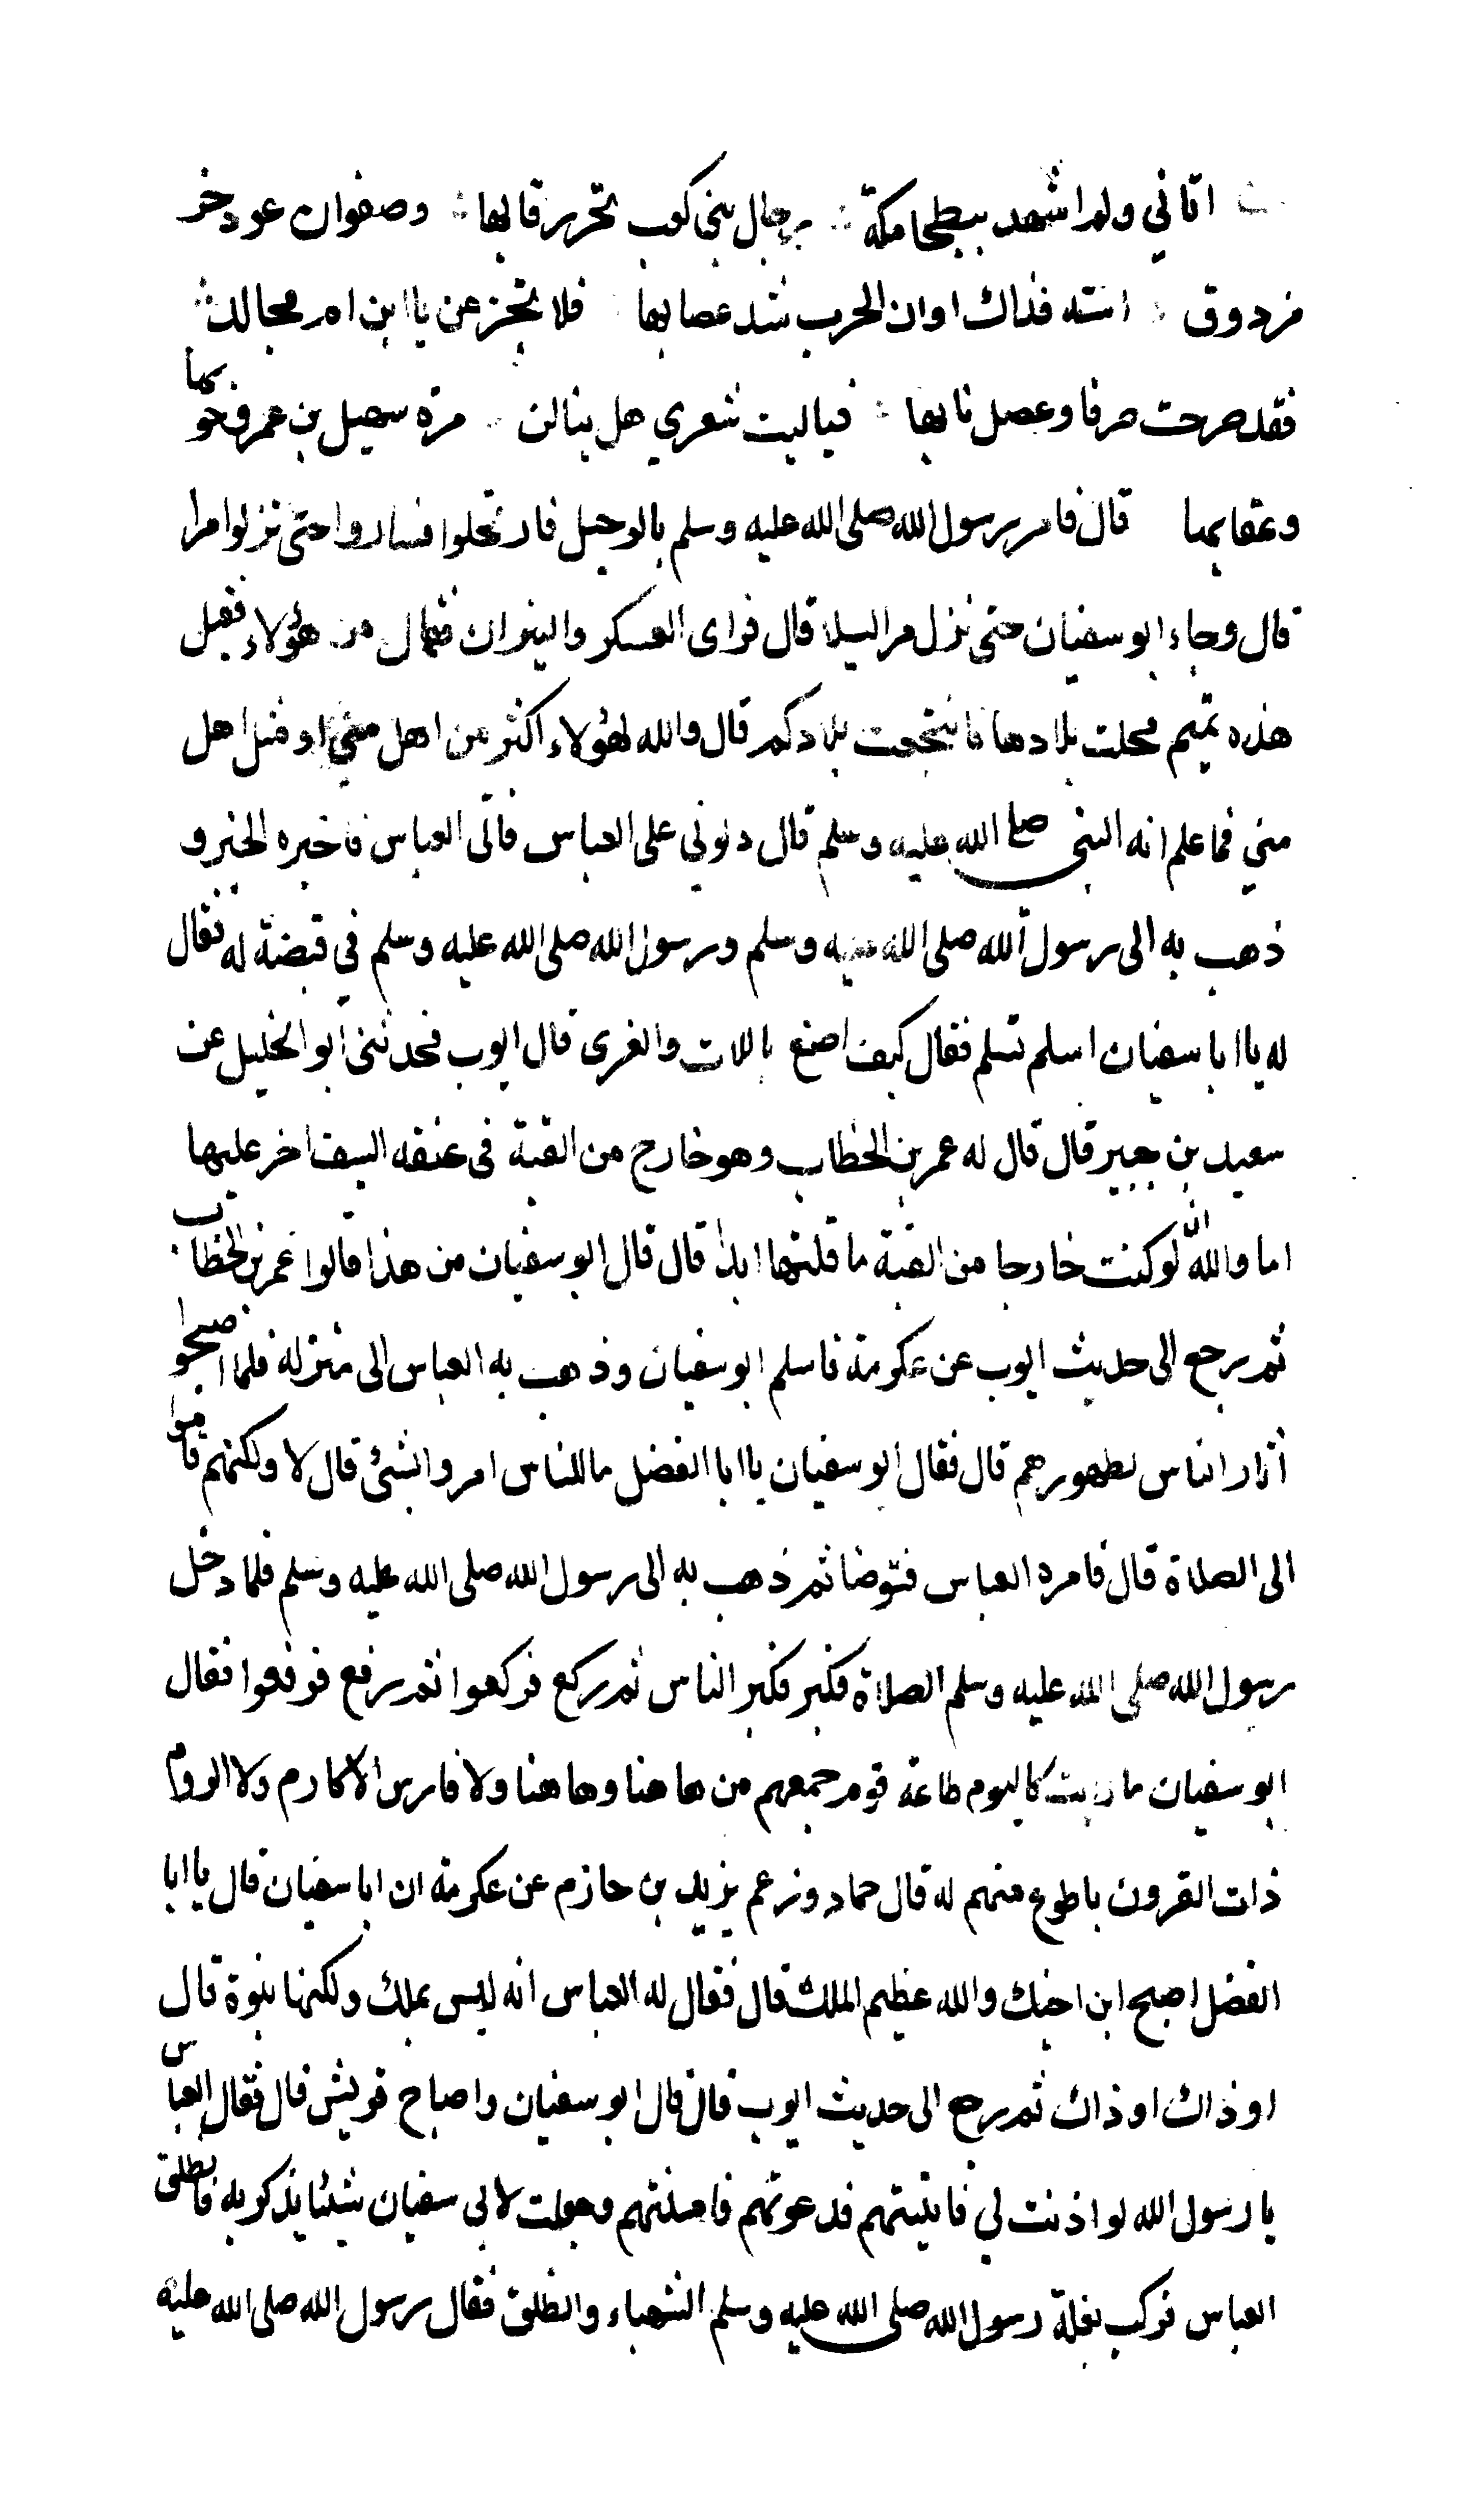 اتاني ولم اشهد ببطحا مكة : رجال بني كعب تحزر رقابها : وصفوان عود خر
من دوق : استه فذاك اوان الحرب شد عصابها فلا تجزعن يا ابن ام مجالد :
فقد صرحت صرفا وعصل نابها : فياليت شعري هل ينالن مرة سهيل بن عمرو حوبها
وعقابها قال فامر رسول الله صلى الله عليه وسلم بالرحيل فارتحلوا فساروا حتى نزلوا مرا
قال وجاء ابو سفيان حتى نزل مر اليلا قال فراى العسكر والنيران فقال من هؤلاء فقيل
هذه تميم محلت بلادها فانتجعت بلادكم قال والله لهؤلاء اكثر من اهل منى او مثل اهل
منى فلما علم انه النبي صلى الله عليه وسلم قال دلوني على العباس فاتى العباس فاخبره الخبر و
ذهب به الى رسول الله صلى الله عليه وسلم ورسول الله صلى الله عليه وسلم في قبة له فقال
له يا ابا سفيان اسلم تسلم فقال كيف اصنع باللات والعزى قال ايوب فحدثني ابو الخليل عن
سعيد بن جبير قال قال له عمر بن الخطاب وهو خارج من القبة في عنقه السيف اخر عليها
اما والله لو كنت خارجا من القبة ما قلتها ابدا قال قال ابو سفيان من هذا قالوا عمر بن الخطاب
ثم رجع الى حديث ايوب عن عكرمة فاسلم ابو سفيان وذهب به العباس الى منزله فلما اصبحوا
ثار الناس لطهورهم قال فقال ابو سفيان يا ابا الفضل ما للناس امروا بشئ قال لا ولكنهم قاموا
الى الصلاة قال فامره العباس فتوضا ثم ذهب به الى رسول الله صلى الله عليه وسلم فلما دخل
رسول الله صلى الله عليه وسلم الصلاة فكبر فكبر الناس ثم ركع فركعوا ثم رفع فرفعوا فقال
ابو سفيان ما رايت كاليوم طاعة قوم جمعهم من هاهنا وهاهنا ولا فارس الاكارم ولا الروم
ذات القرون باطوع منهم له قال حماد وزعم يزيد بن حازم عن عكرمة ان ابا سفيان قال يا ابا
الفضل اصبح ابن اخيك والله عظيم الملك قال فقال له العباس انه ليس بملك ولكنها نبوة قال
او ذاك او ذاك ثم رجع الى حديث ايوب قال قال ابو سفيان واصباح قريش قال فقال العباس
يا رسول الله لو اذنت لي فاتيتهم فدعوتهم فامنتهم وجعلت لابي سفيان شيئا يذكر به فانطلق
العباس فركب بغلة رسول الله صلى الله عليه وسلم الشهباء وانطلق فقال رسول الله صلى الله عليه